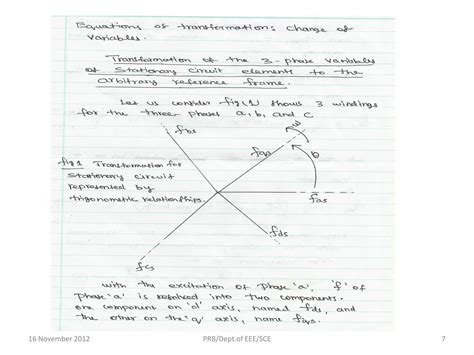 Equations of transformation: Change of
variables.
Transformation of the 3-phase variables
of Stationary circuit elements to the
arbitrary reference frame.
Let us consider fig(1) shows 3 windings
for the three phases a, b, and c
fbs
ω
fqs
θ
fig 1 Transformation for
Stationary circuit
represented by
trigonometric relationships.
fas
fds
fcs
with the excitation of phase 'a', 'f' of
phase 'a' is resolved into two components.
one component on 'd' axis, named fds, and
the other on the 'q' axis, name fqs.
16 November 2012
PRB/Dept.of EEE/SCE
7